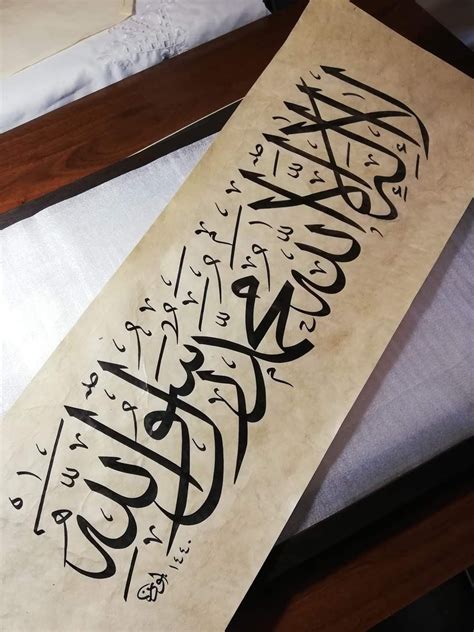 لا إله إلا الله محمد رسول الله
١٤٤٠